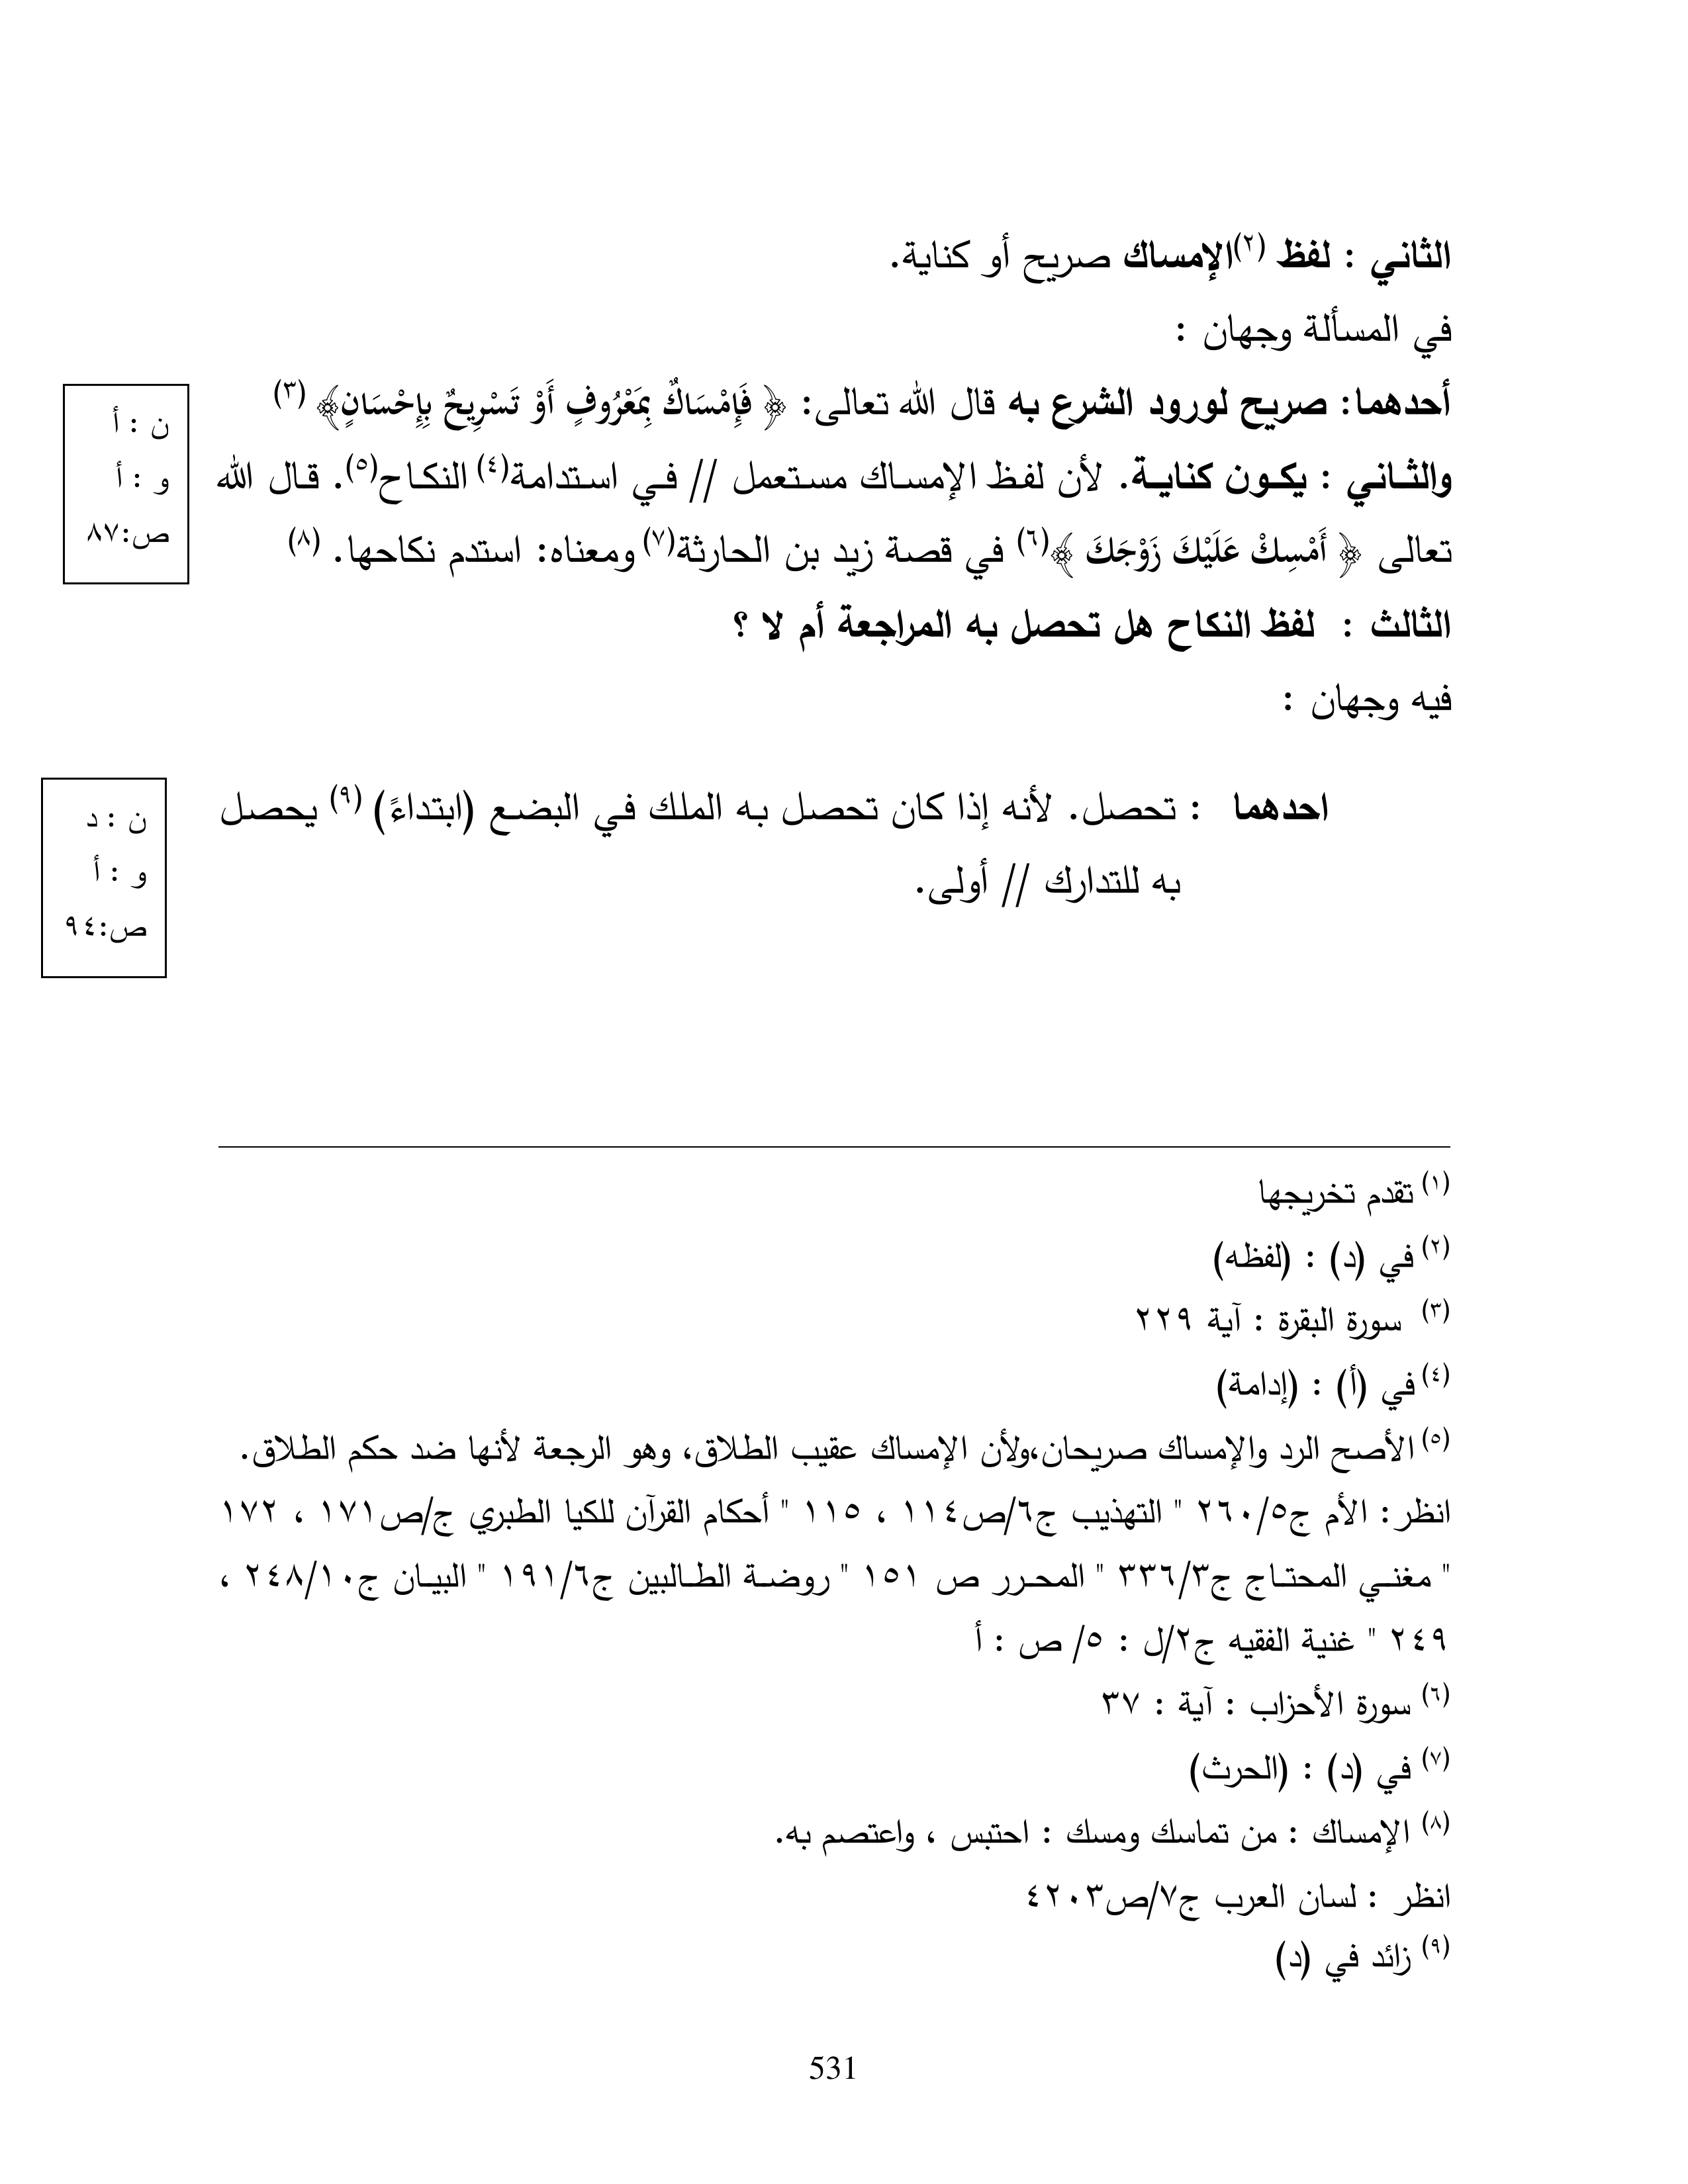 الثاني : لفظ (٢)الإمساك صريح أو كناية.
في المسألة وجهان :
أحدهما: صريح لورود الشرع به قال الله تعالى: ﴿ فَإِمْسَاكٌ بِمَعْرُوفٍ أَوْ تَسْرِيحٌ بِإِحْسَانٍ﴾ (٣)
والثاني : يكون كناية. لأن لفظ الإمساك مستعمل // في استدامة(٤) النكاح(٥). قال الله
تعالى ﴿ أَمْسِكْ عَلَيْكَ زَوْجَكَ ﴾(٦) في قصة زيد بن الحارثة(٧) ومعناه: استدم نكاحها. (٨)
ن : أ
و : أ
ص:٨٧
الثالث : لفظ النكاح هل تحصل به المراجعة أم لا ؟
فيه وجهان :
احدهما : تحصل. لأنه إذا كان تحصل به الملك في البضع (ابتداءً) (٩) يحصل
به للتدارك // أولى.
ن : د
و : أ
ص:٩٤
(١) تقدم تخريجها
(٢) في (د) : (لفظه)
(٣) سورة البقرة : آية ٢٢٩
(٤) في (أ) : (إدامة)
(٥) الأصح الرد والإمساك صريحان،ولأن الإمساك عقيب الطلاق، وهو الرجعة لأنها ضد حكم الطلاق.
انظر: الأم ج٢٦٠/٥ " التهذيب ج٦/ص١١٤ ، ١١٥ " أحكام القرآن للكيا الطبري ج/ص١٧١ ، ١٧٢
" مغني المحتاج ج٣٣٦/٣ " المحرر ص ١٥١ " روضة الطالبين ج١٩١/٦ " البيان ج٢٤٨/١٠ ،
٢٤٩ " غنية الفقيه ج٢/ل : ٥/ ص : أ
(٦) سورة الأحزاب : آية : ٣٧
(٧) في (د) : (الحرث)
(٨) الإمساك : من تماسك ومسك : احتبس ، واعتصم به.
انظر : لسان العرب ج٧/ص٤٢٠٣
(٩) زائد في (د)
531